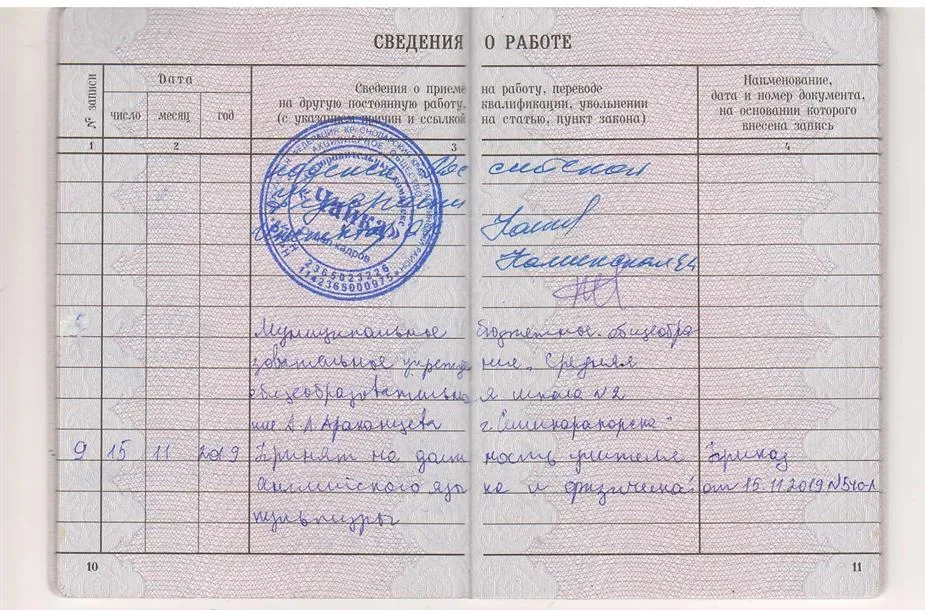 СВЕДЕНИЯ О РАБОТЕ
№ записи
Дата
число месяц год
Сведения о приеме на работу, переводе
на другую постоянную работу, квалификации, увольнении
(с указанием причин и ссылкой на статью, пункт закона)
Наименование,
дата и номер документа,
на основании которого
внесена запись
1 2 3 4
Чайка
отдел кадров
2365023226
Муниципальное бюджетное общеобра
зовательное учреждение „Средняя
общеобразовательная школа №2
г. Семикаракорска"
9 15 11 2019 Принят на должность учителя Приказ
английского языка и физической от 15.11.2019 №540-л
культуры
10 11